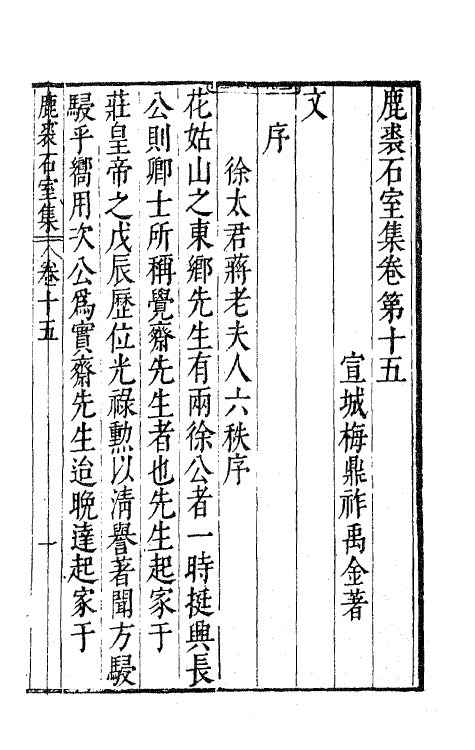 鹿裘石室集卷第十五
宣城梅鼎祚禹金著
文
序
徐太君蔣老夫人六秩序
花姑山之東鄉先生有兩徐公者一時挺興長
公則鄉士所稱覺齋先生者也先生起家于
莊皇帝之戊辰歷位光祿勲以清譽著聞方駸
駸乎嚮用次公爲實齋先生迨晩達起家于
鹿裘石室集 卷十五 一